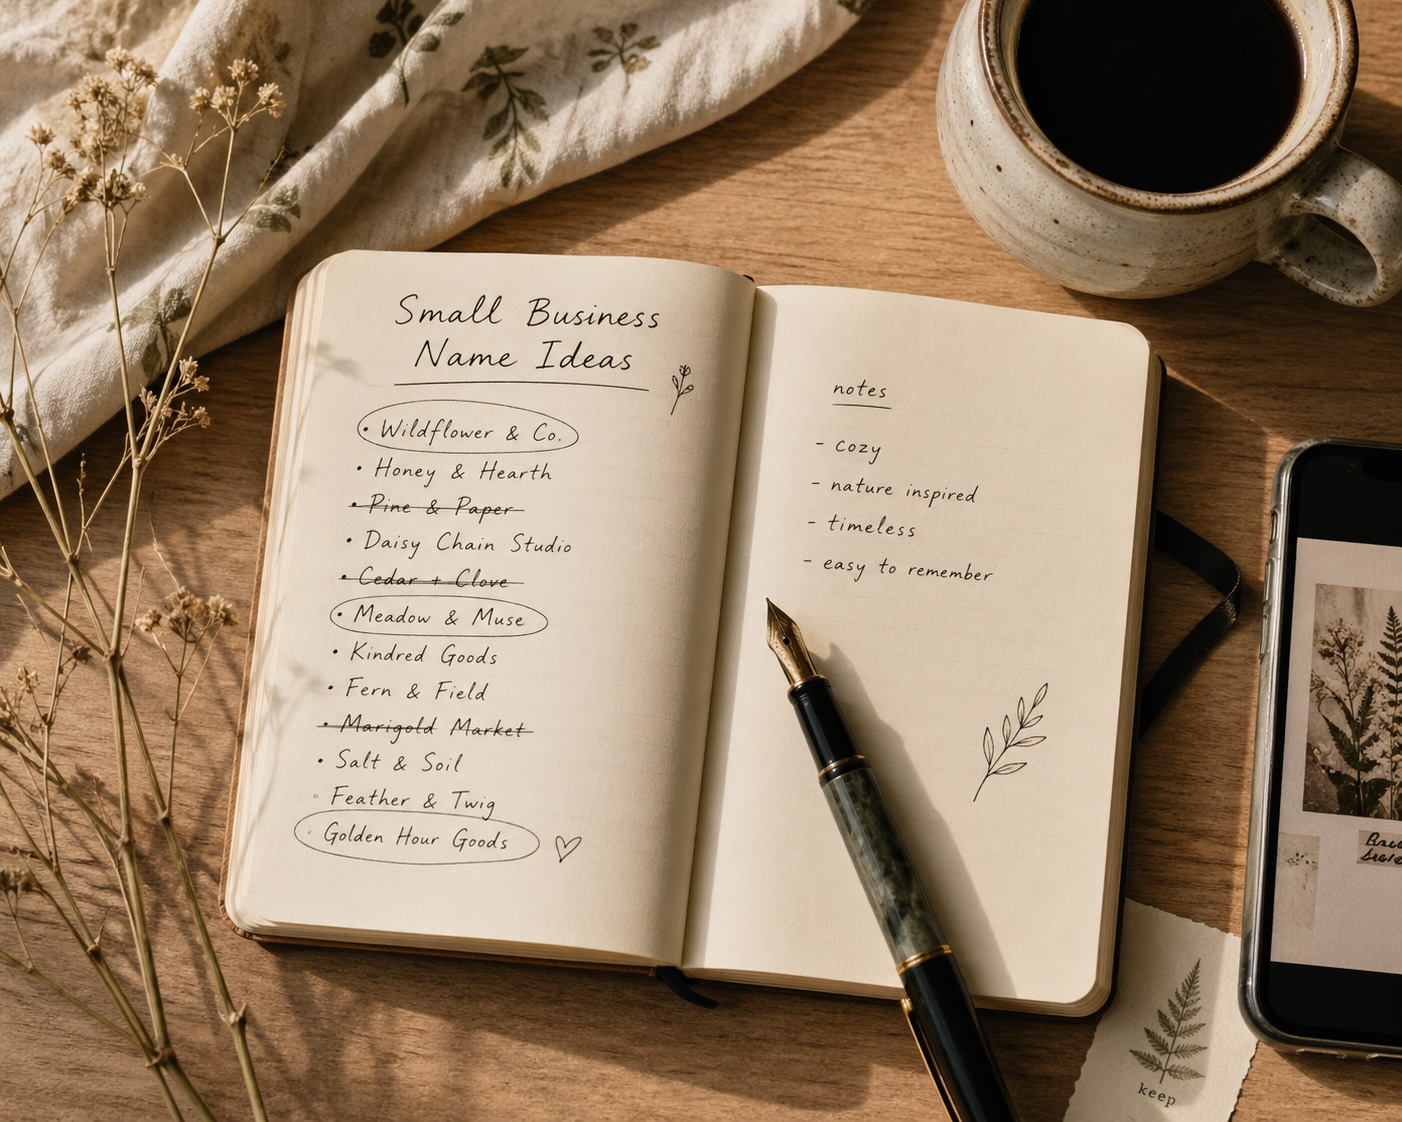 Small Business
Name Ideas
• Wildflower & Co.
• Honey & Hearth
• Pine & Paper
• Daisy Chain Studio
• Cedar + Clove
• Meadow & Muse
• Kindred Goods
• Fern & Field
• Marigold Market
• Salt & Soil
• Feather & Twig
• Golden Hour Goods
notes
- cozy
- nature inspired
- timeless
- easy to remember
keep